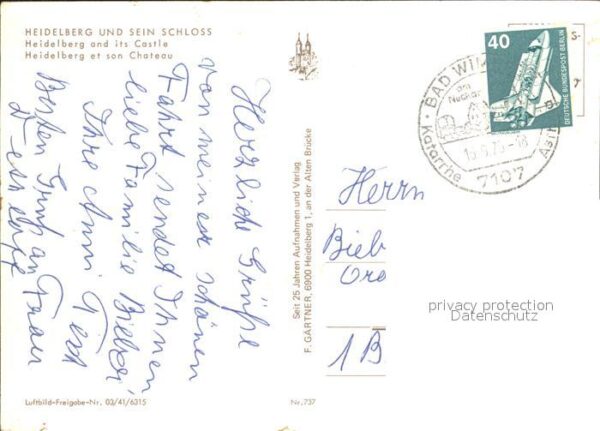 HEIDELBERG UND SEIN SCHLOSS
Heidelberg and its Castle
Heidelberg et son Chateau
Herzliche Grüße
von meiner schönen
Fahrt sendet Ihnen
liebe Familie Bieber
Ihre Anni
Besten Gruß an Frau
Luftbild-Freigabe-Nr. 03/41/6315
Seit 25 Jahren Aufnahmen und Verlag
F. GÄRTNER, 6900 Heidelberg 1, an der Alten Brücke
Nr. 737
40
DEUTSCHE BUNDESPOST BERLIN
BAD WIM
am
Neckar
Katarrhe
Asth
7107
Herrn
Bieb
1 B
privacy protection
Datenschutz